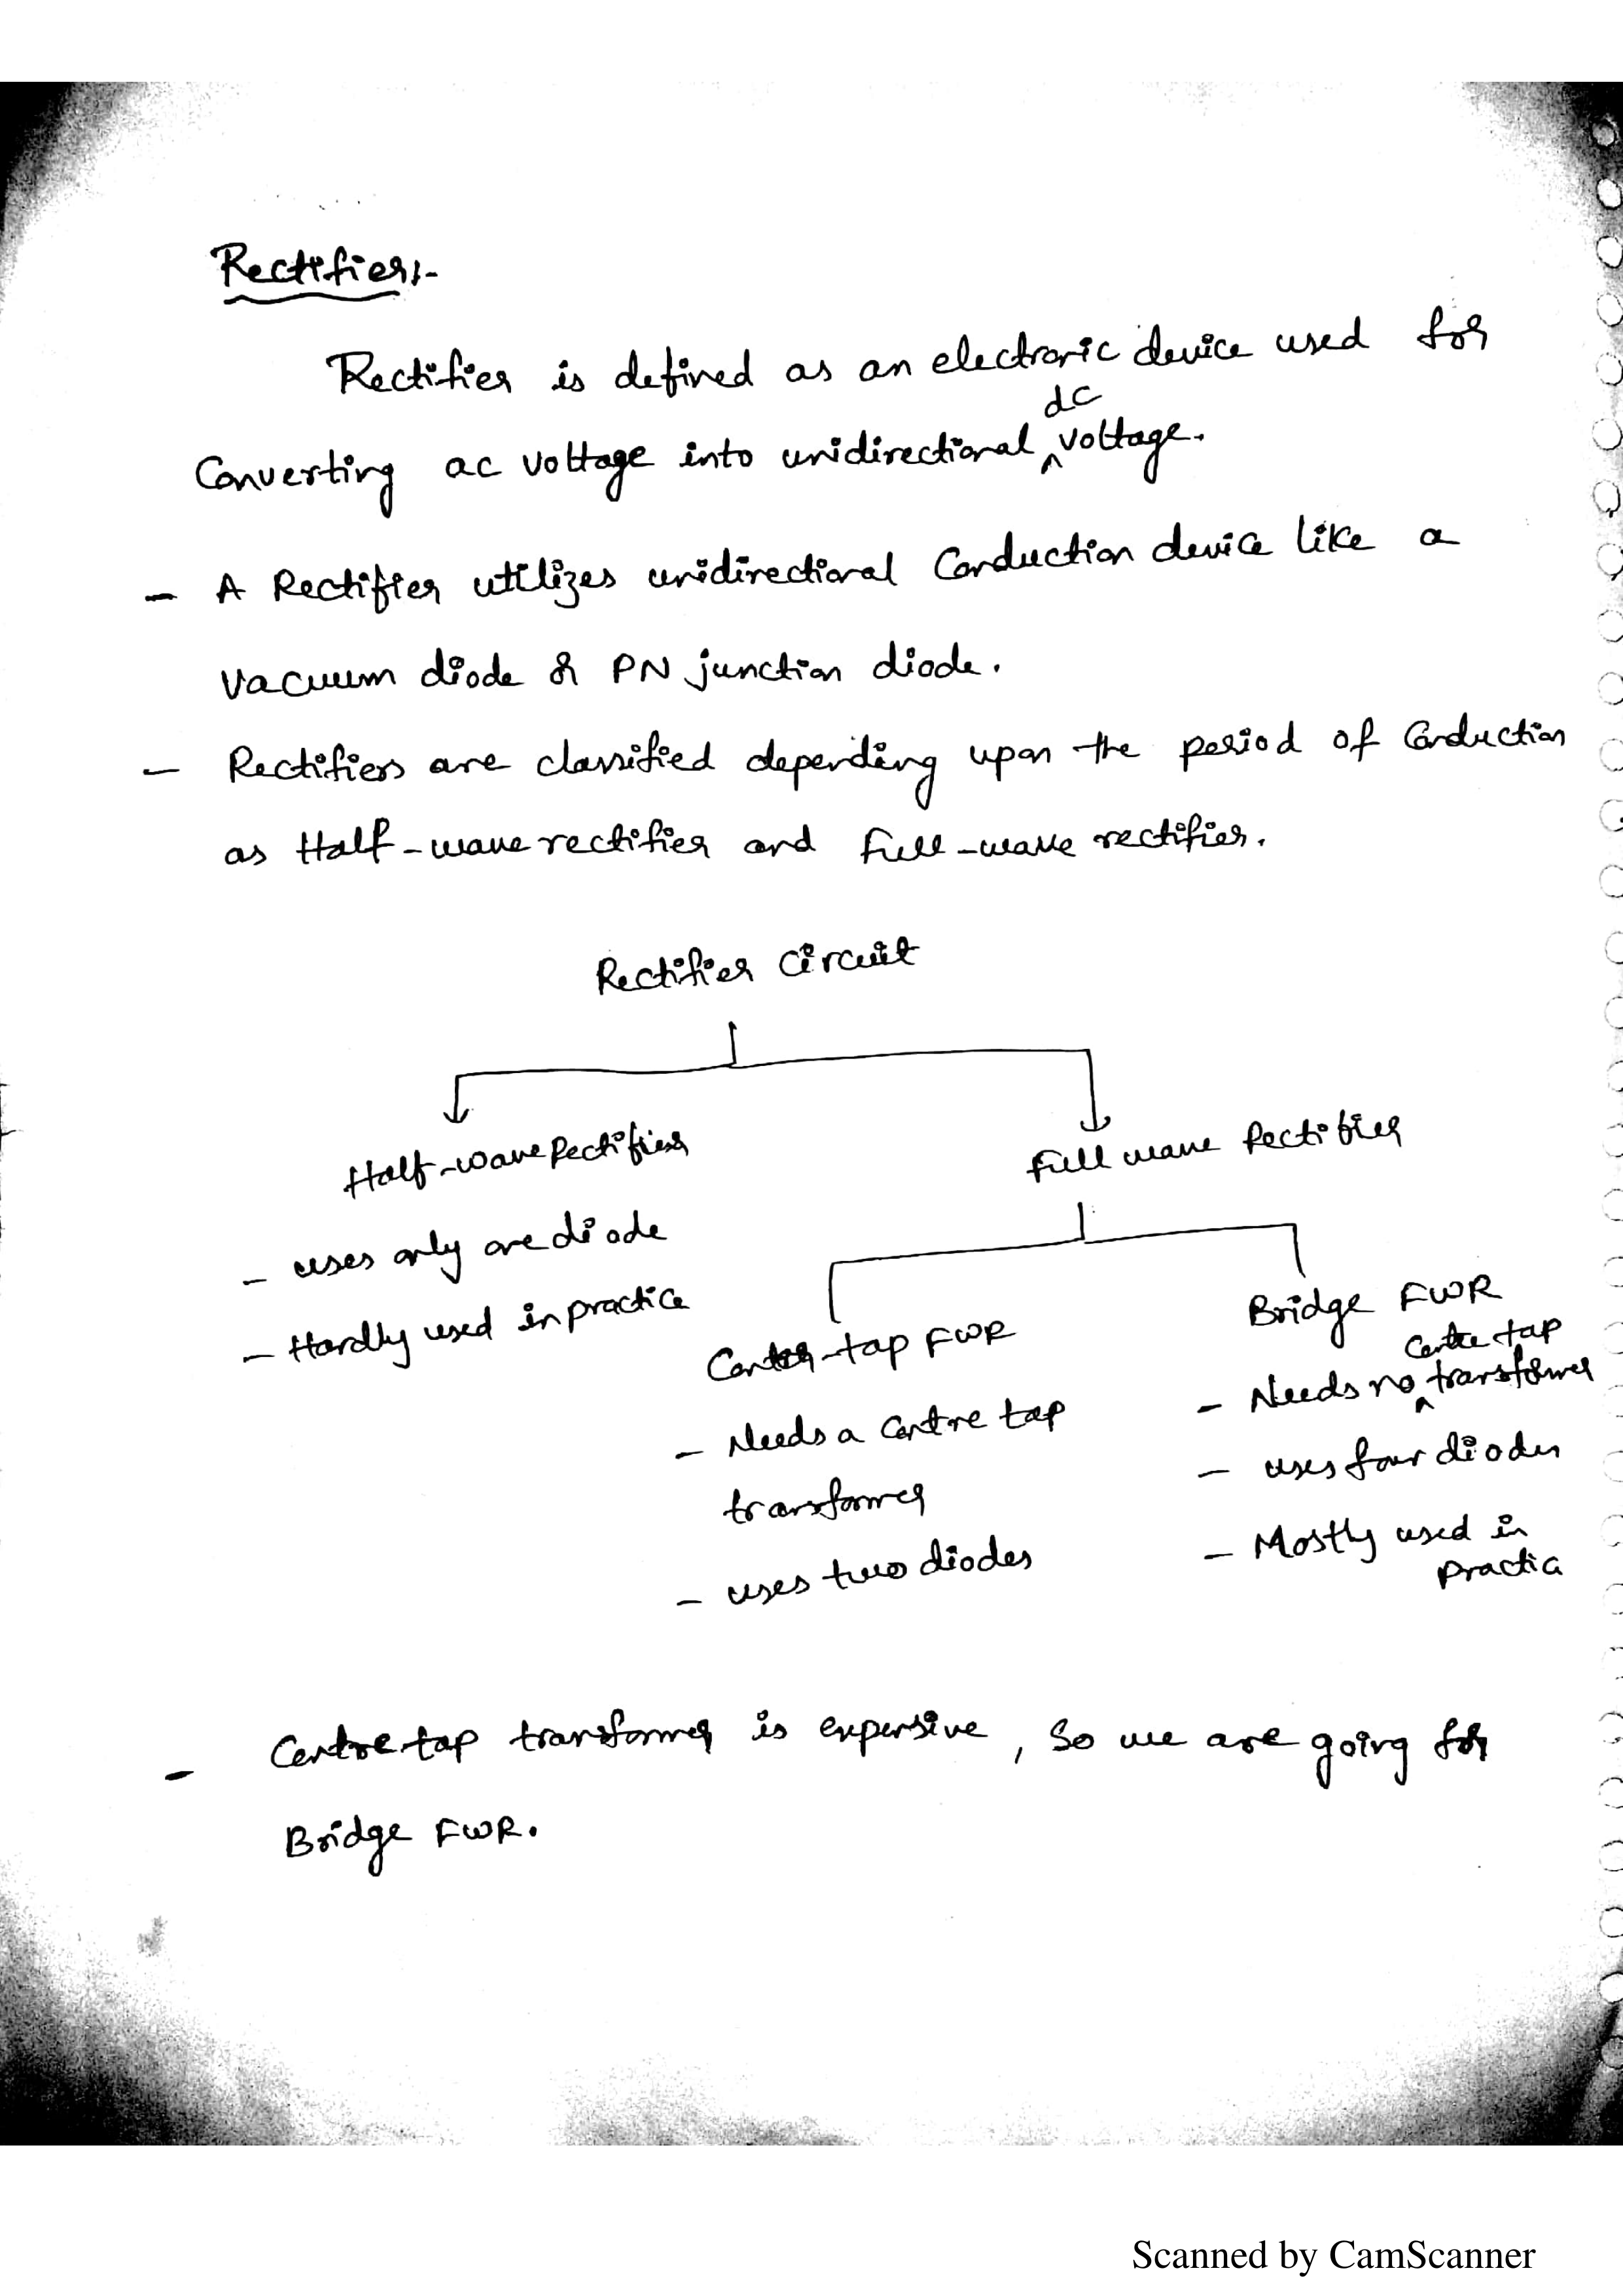 Rectifier:-
Rectifier is defined as an electronic device used for
Converting ac voltage into unidirectional dc voltage.
- A Rectifier utilizes unidirectional Conduction device like a
Vacuum diode or PN junction diode.
- Rectifiers are classified depending upon the period of Conduction
as Half-wave rectifier and Full-wave rectifier.
Rectifier Circuit
Half-wave Rectifier
Full wave Rectifier
- uses only one diode
- Hardly used in practice
Center-tap FWR
- Needs a Centre tap
transformer
- uses two diodes
Bridge FWR
- Needs no Centre tap transformer
- uses four diodes
- Mostly used in
practice
- Centre tap transformer is expensive, So we are going for
Bridge FWR.
Scanned by CamScanner